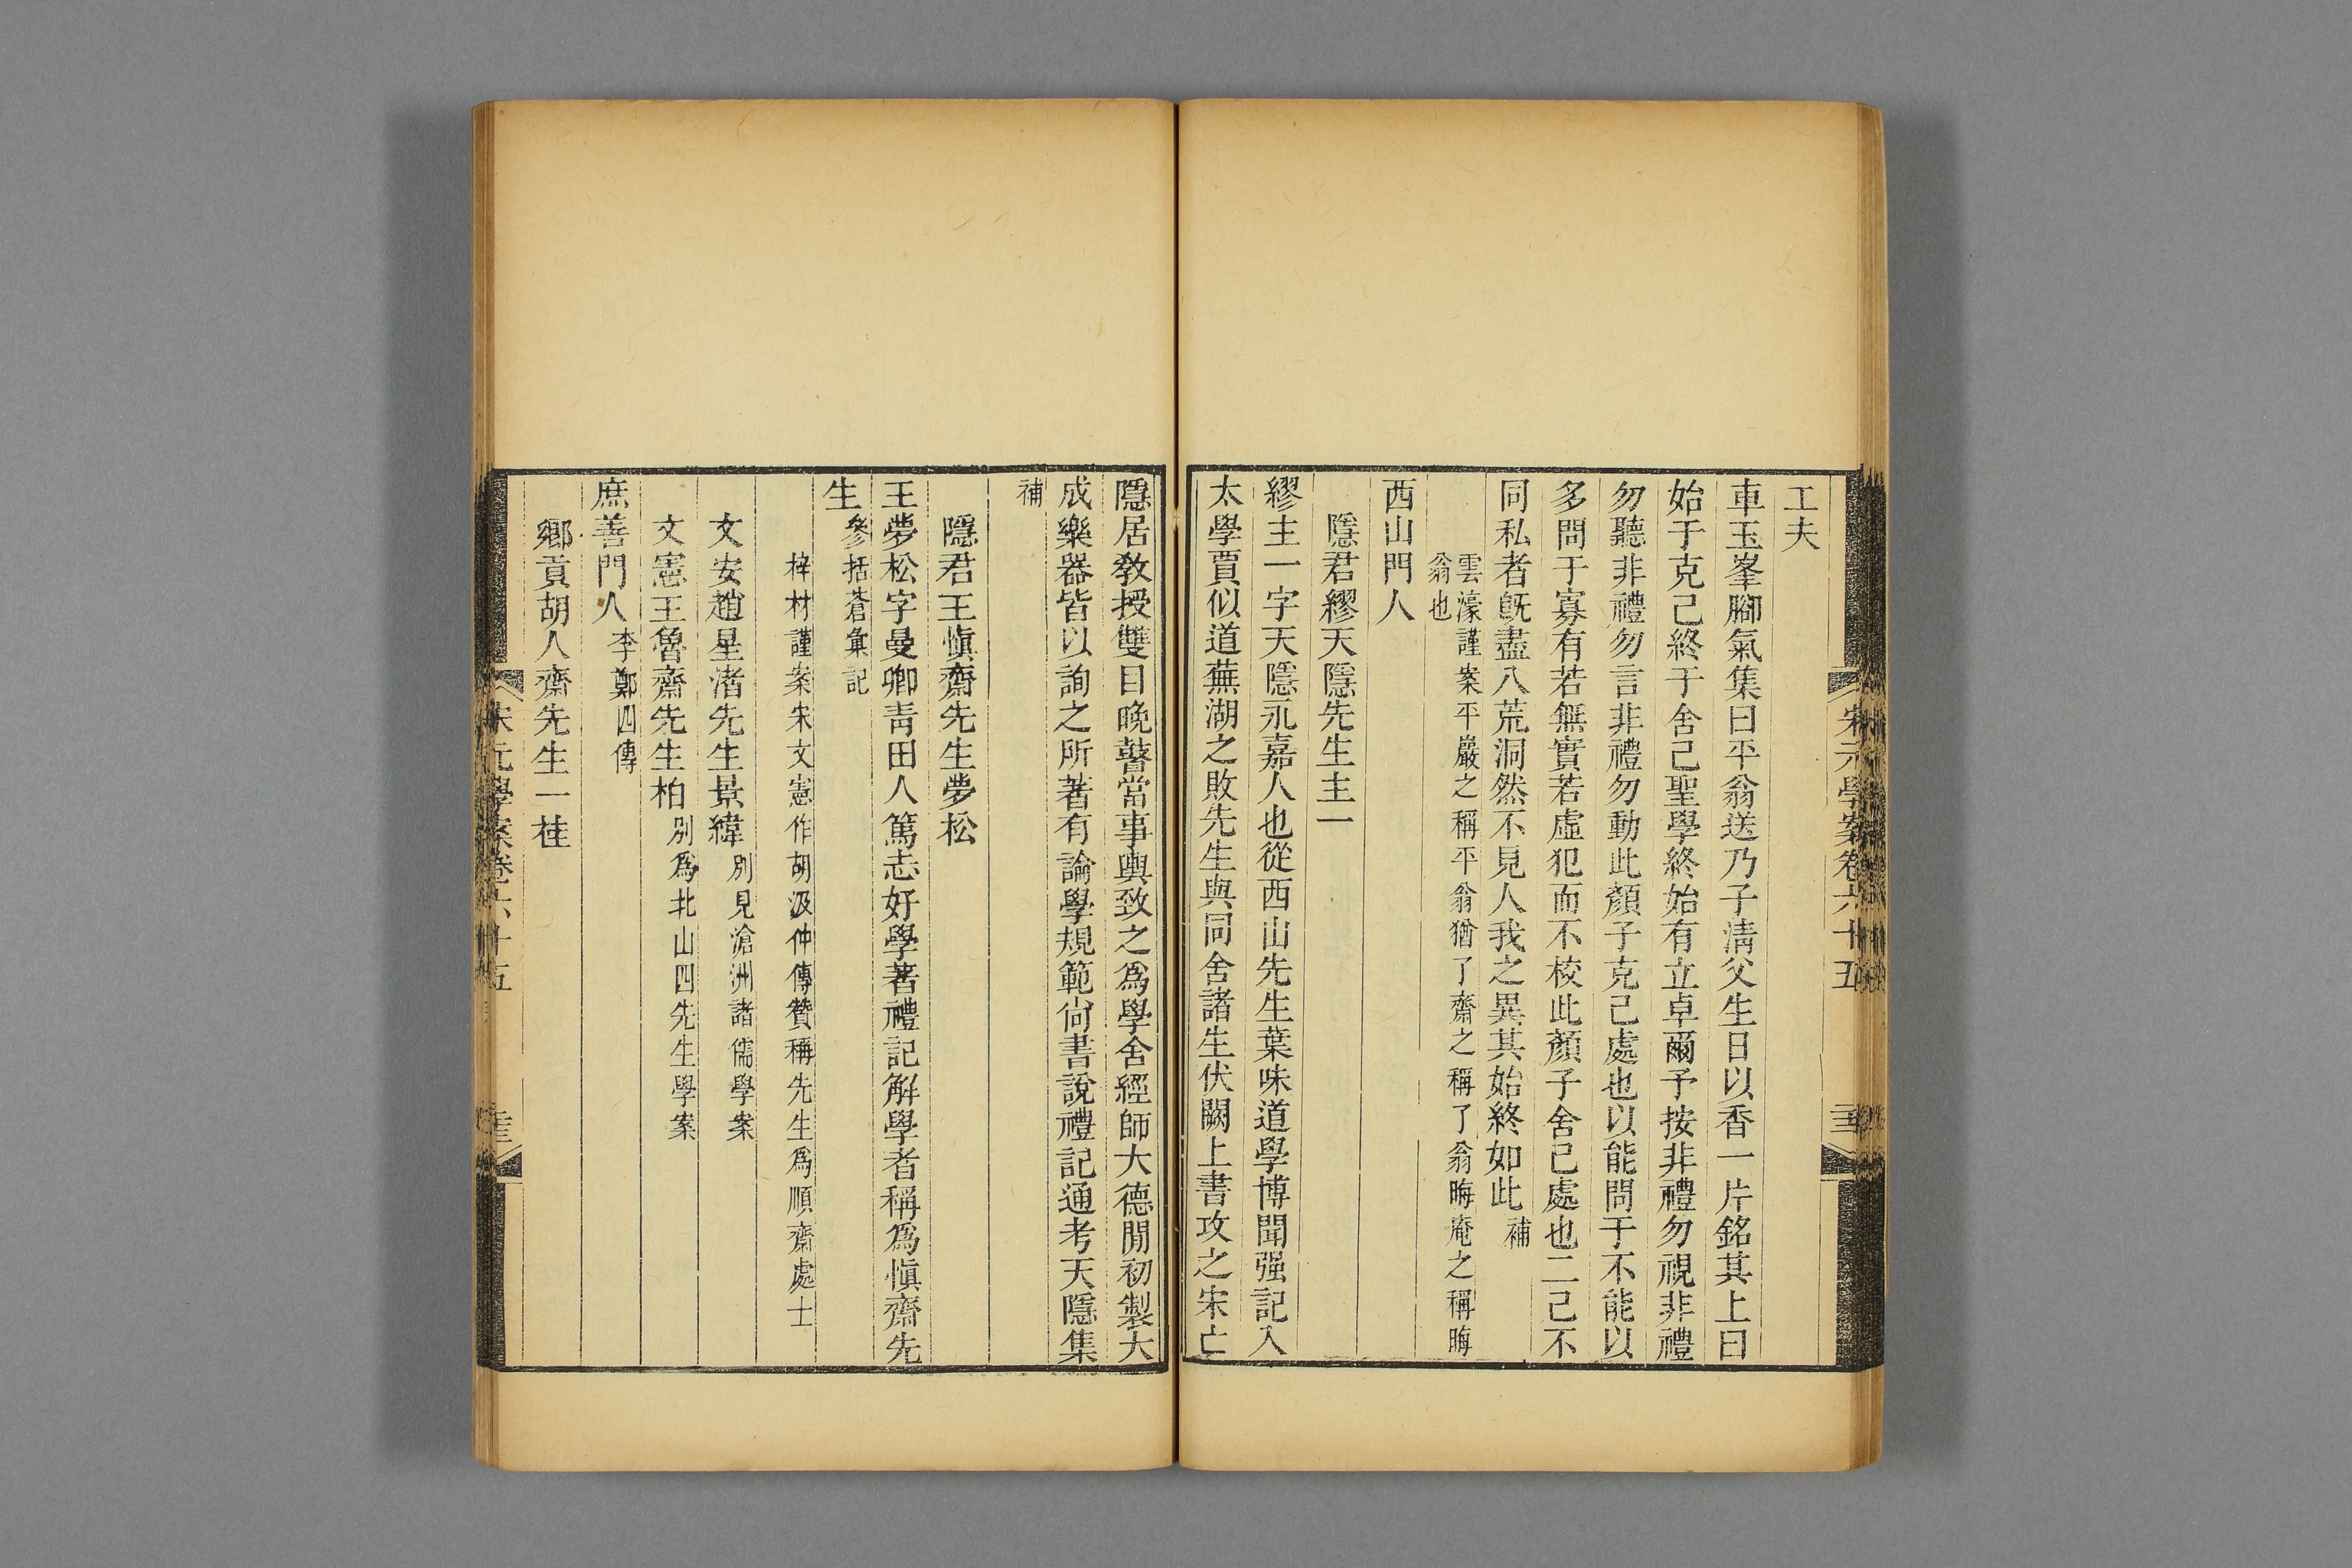 工夫
車玉峯腳氣集曰平翁送乃子淸父生日以香一片銘其上曰
始于克己終于舍己聖學終始有立卓爾予按非禮勿視非禮
勿聽非禮勿言非禮勿動此顏子克己處也以能問于不能以
多問于寡有若無實若虛犯而不校此顏子舍己處也二己不
同私者旣盡八荒洞然不見人我之異其始終如此補
雲濠謹案平巖之稱平翁猶了齋之稱了翁晦庵之稱晦
翁也
西山門人
隱君繆天隱先生主一
繆主一字天隱永嘉人也從西山先生葉味道學博聞强記入
太學賈似道蕪湖之敗先生與同舍諸生伏闕上書攻之宋亡
隱居敎授雙目晚瞽當事輿致之爲學舍經師大德閒初製大
成樂器皆以詢之所著有論學規範尙書說禮記通考天隱集
補
隱君王愼齋先生夢松
王夢松字曼卿靑田人篤志好學著禮記解學者稱爲愼齋先
生參括蒼彙記
梓材謹案宋文憲作胡汲仲傳贊稱先生爲順齋處士
文安趙星渚先生景緯別見滄洲諸儒學案
文憲王魯齋先生柏別爲北山四先生學案
庶善門人李鄭四傳
鄉貢胡人齋先生一桂
宋元學案卷六十五